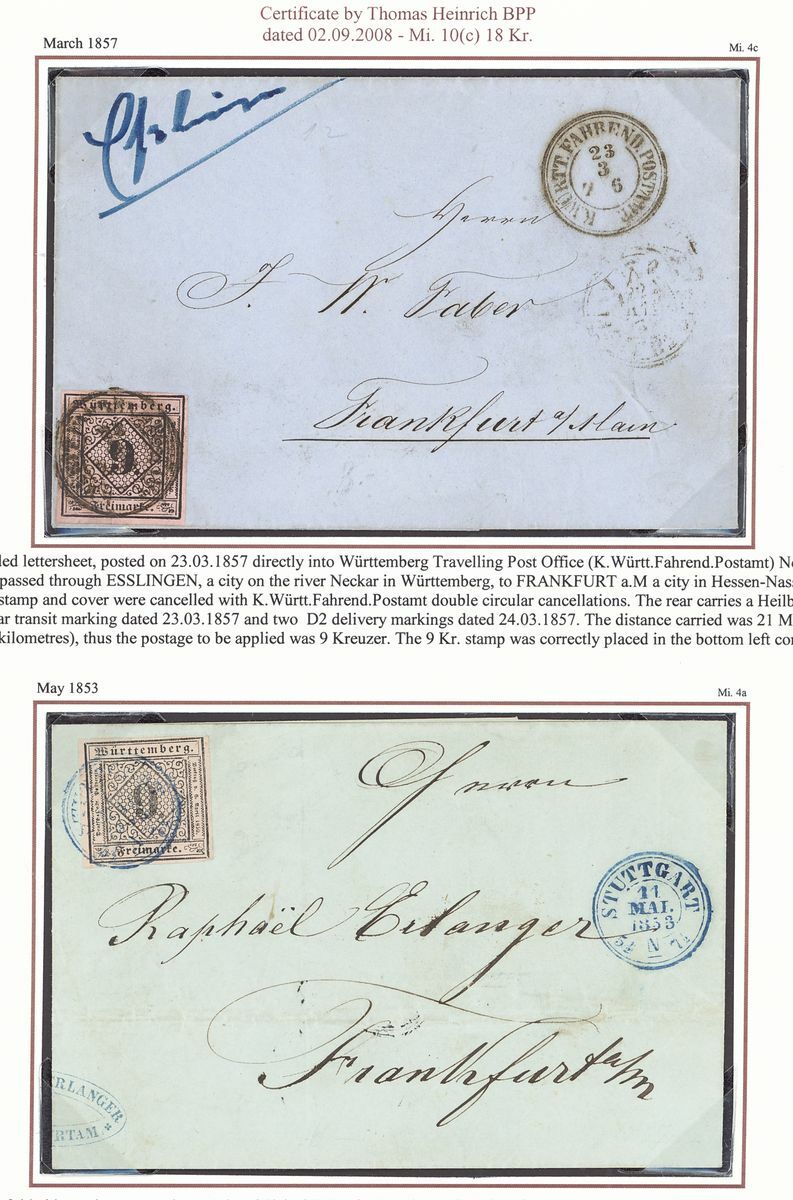 Certificate by Thomas Heinrich BPP
dated 02.09.2008 - Mi. 10(c) 18 Kr.
March 1857
Mi. 4c
K.WÜRTT.FAHREND.POSTAMT
23
3
6
Herrn
J. W. Faber
Frankfurt a/Main
Württemberg.
9
Freimarke.
led lettersheet, posted on 23.03.1857 directly into Württemberg Travelling Post Office (K.Württ.Fahrend.Postamt) No
passed through ESSLINGEN, a city on the river Neckar in Württemberg, to FRANKFURT a.M a city in Hessen-Nass
stamp and cover were cancelled with K.Württ.Fahrend.Postamt double circular cancellations. The rear carries a Heilb
ar transit marking dated 23.03.1857 and two D2 delivery markings dated 24.03.1857. The distance carried was 21 M
kilometres), thus the postage to be applied was 9 Kreuzer. The 9 Kr. stamp was correctly placed in the bottom left cor
May 1853
Mi. 4a
Württemberg.
9
Freimarke.
Herrn
STUTTGART
11
MAI.
1853
N
Raphaël Erlanger
Frankfurt a/m
RLANGER
RTAM